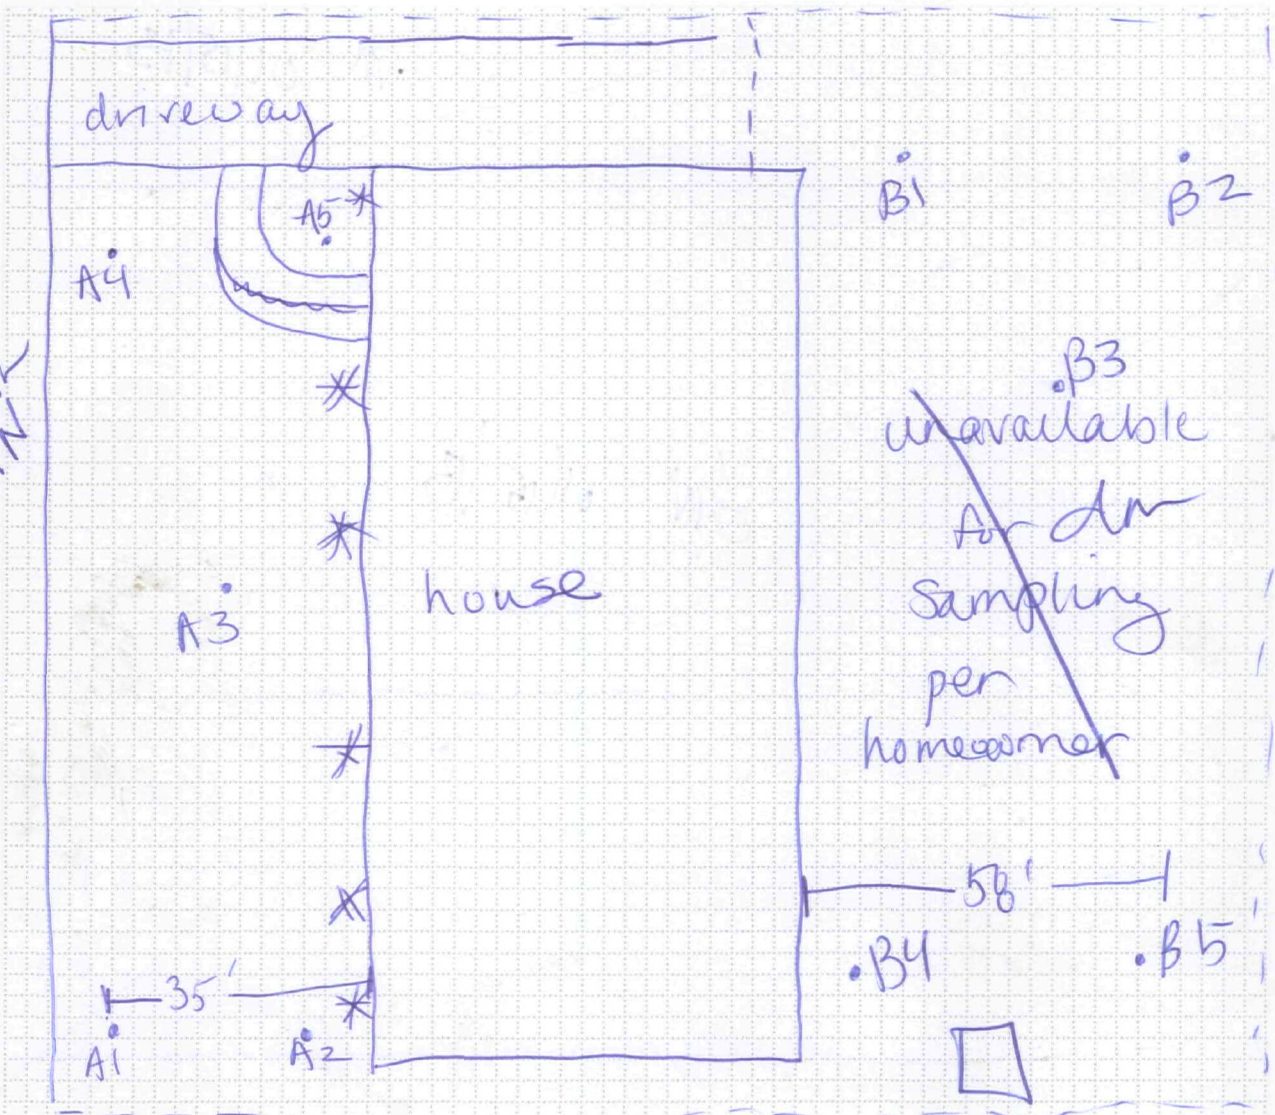 driveway
B1
B2
A5
A4
B3
unavailable
for
sampling
per
homeowner
house
A3
58'
B4
B5
35'
A1
A2
N